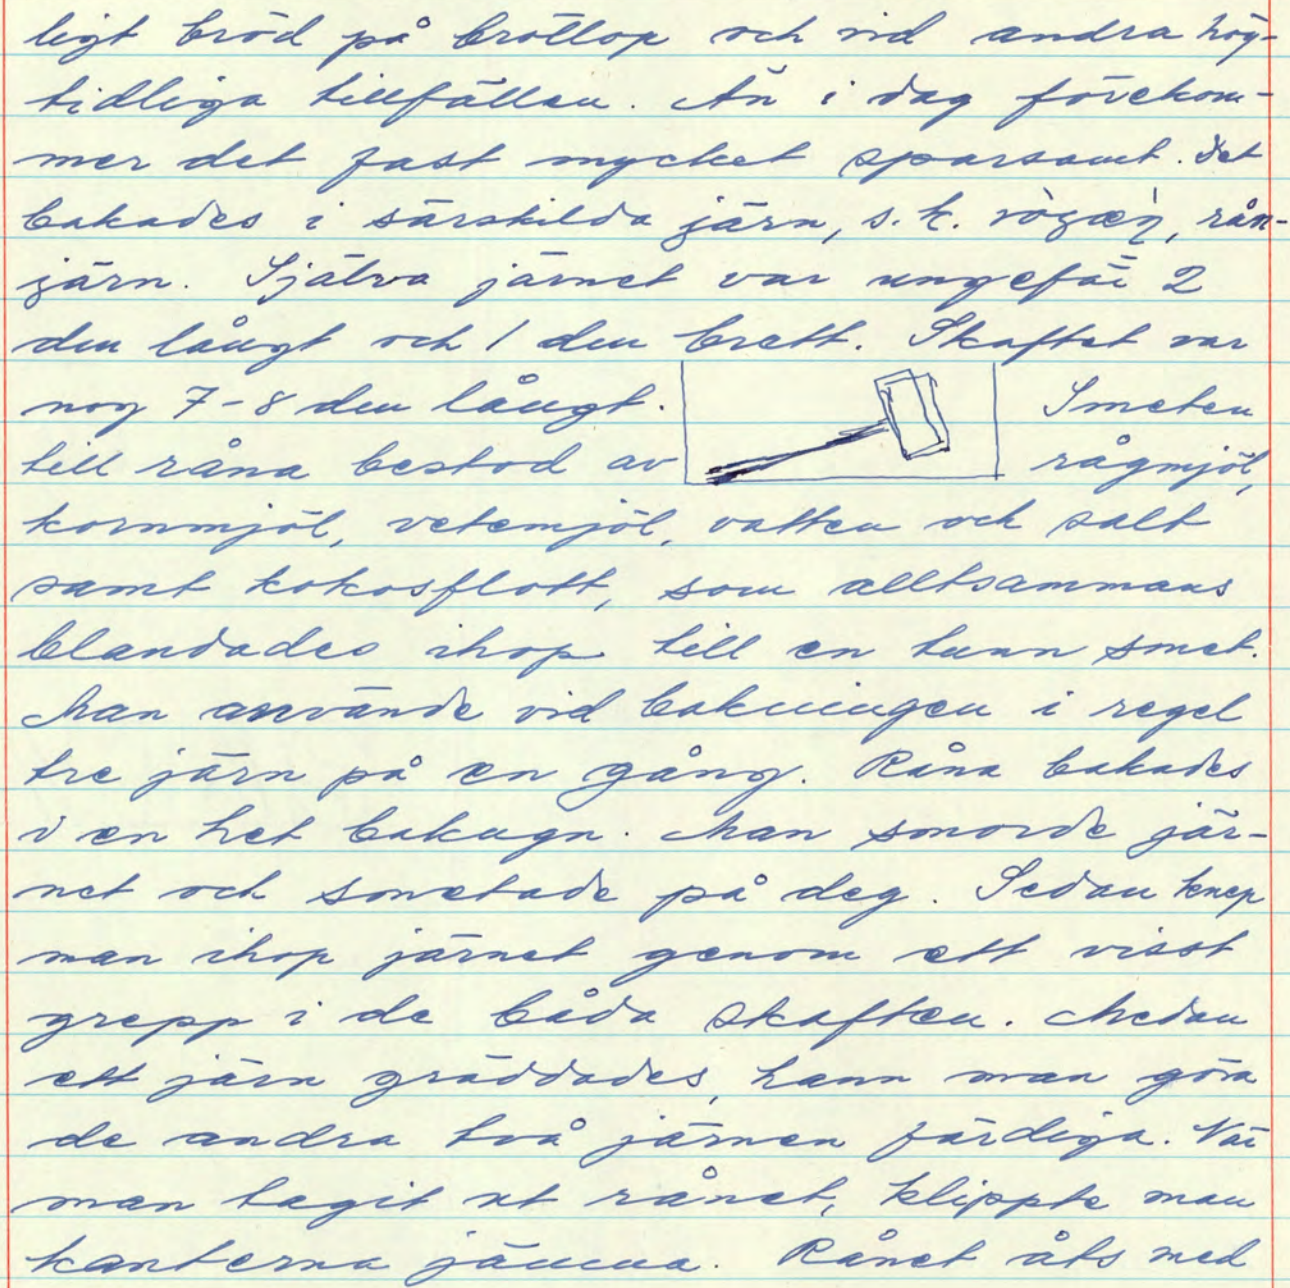 ligt bröd på bröllop och vid andra hög-
tidliga tillfällen. Än i dag förekom-
mer det fast mycket sparsamt. Det
bakades i särskilda järn, s.k. rån-
järn. Själva järnet var ungefär 2
dm långt och 1 dm brett. Skaftet var
nog 7-8 dm långt. Smeten
till råna bestod av rågmjöl,
kornmjöl, vetemjöl, vatten och salt
samt kokosflott, som alltsammans
blandades ihop till en tunn smet.
Man använde vid bakningen i regel
tre järn på en gång. Råna bakades
i en het bakugn. Man smorde jär-
net och smetade på deg. Sedan knep
man ihop järnet genom ett visst
grepp i de båda skaften. Medan
ett järn gräddades, hann man göra
de andra två järnen färdiga. När
man tagit ut rånet, klippte man
kanterna jämna. Rånet åts med